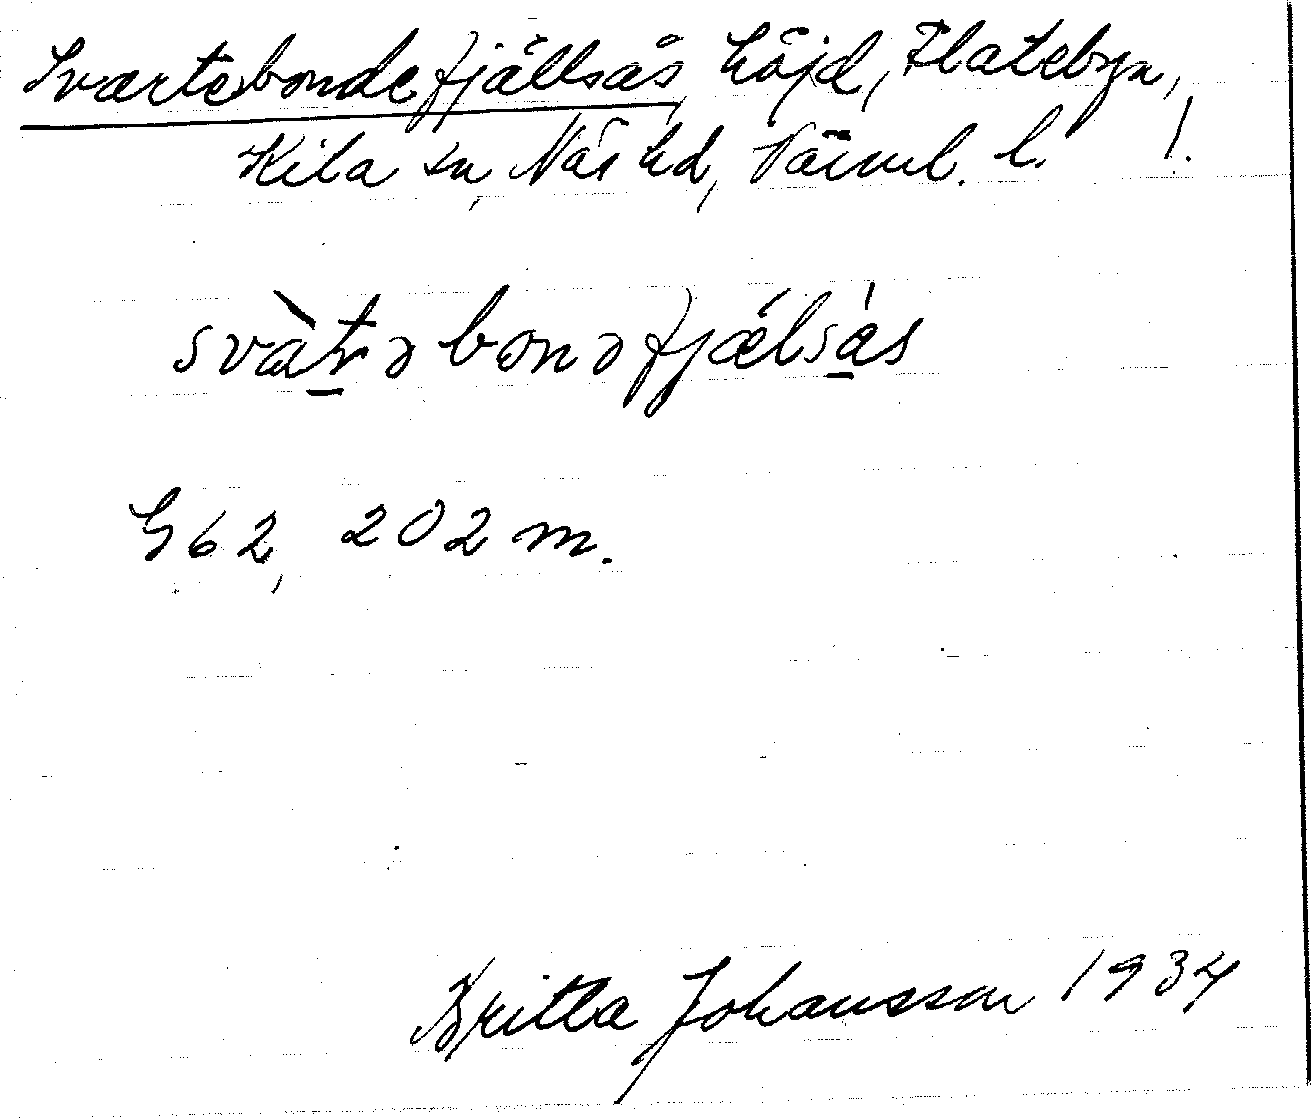 Svartebondefjällsås, höjd, Flatebyn,
Kila sn, Näs hd, Värml. l. !.
svàtrəbonəfjælsás
G62, 202 m.
Britta Johansson 1934